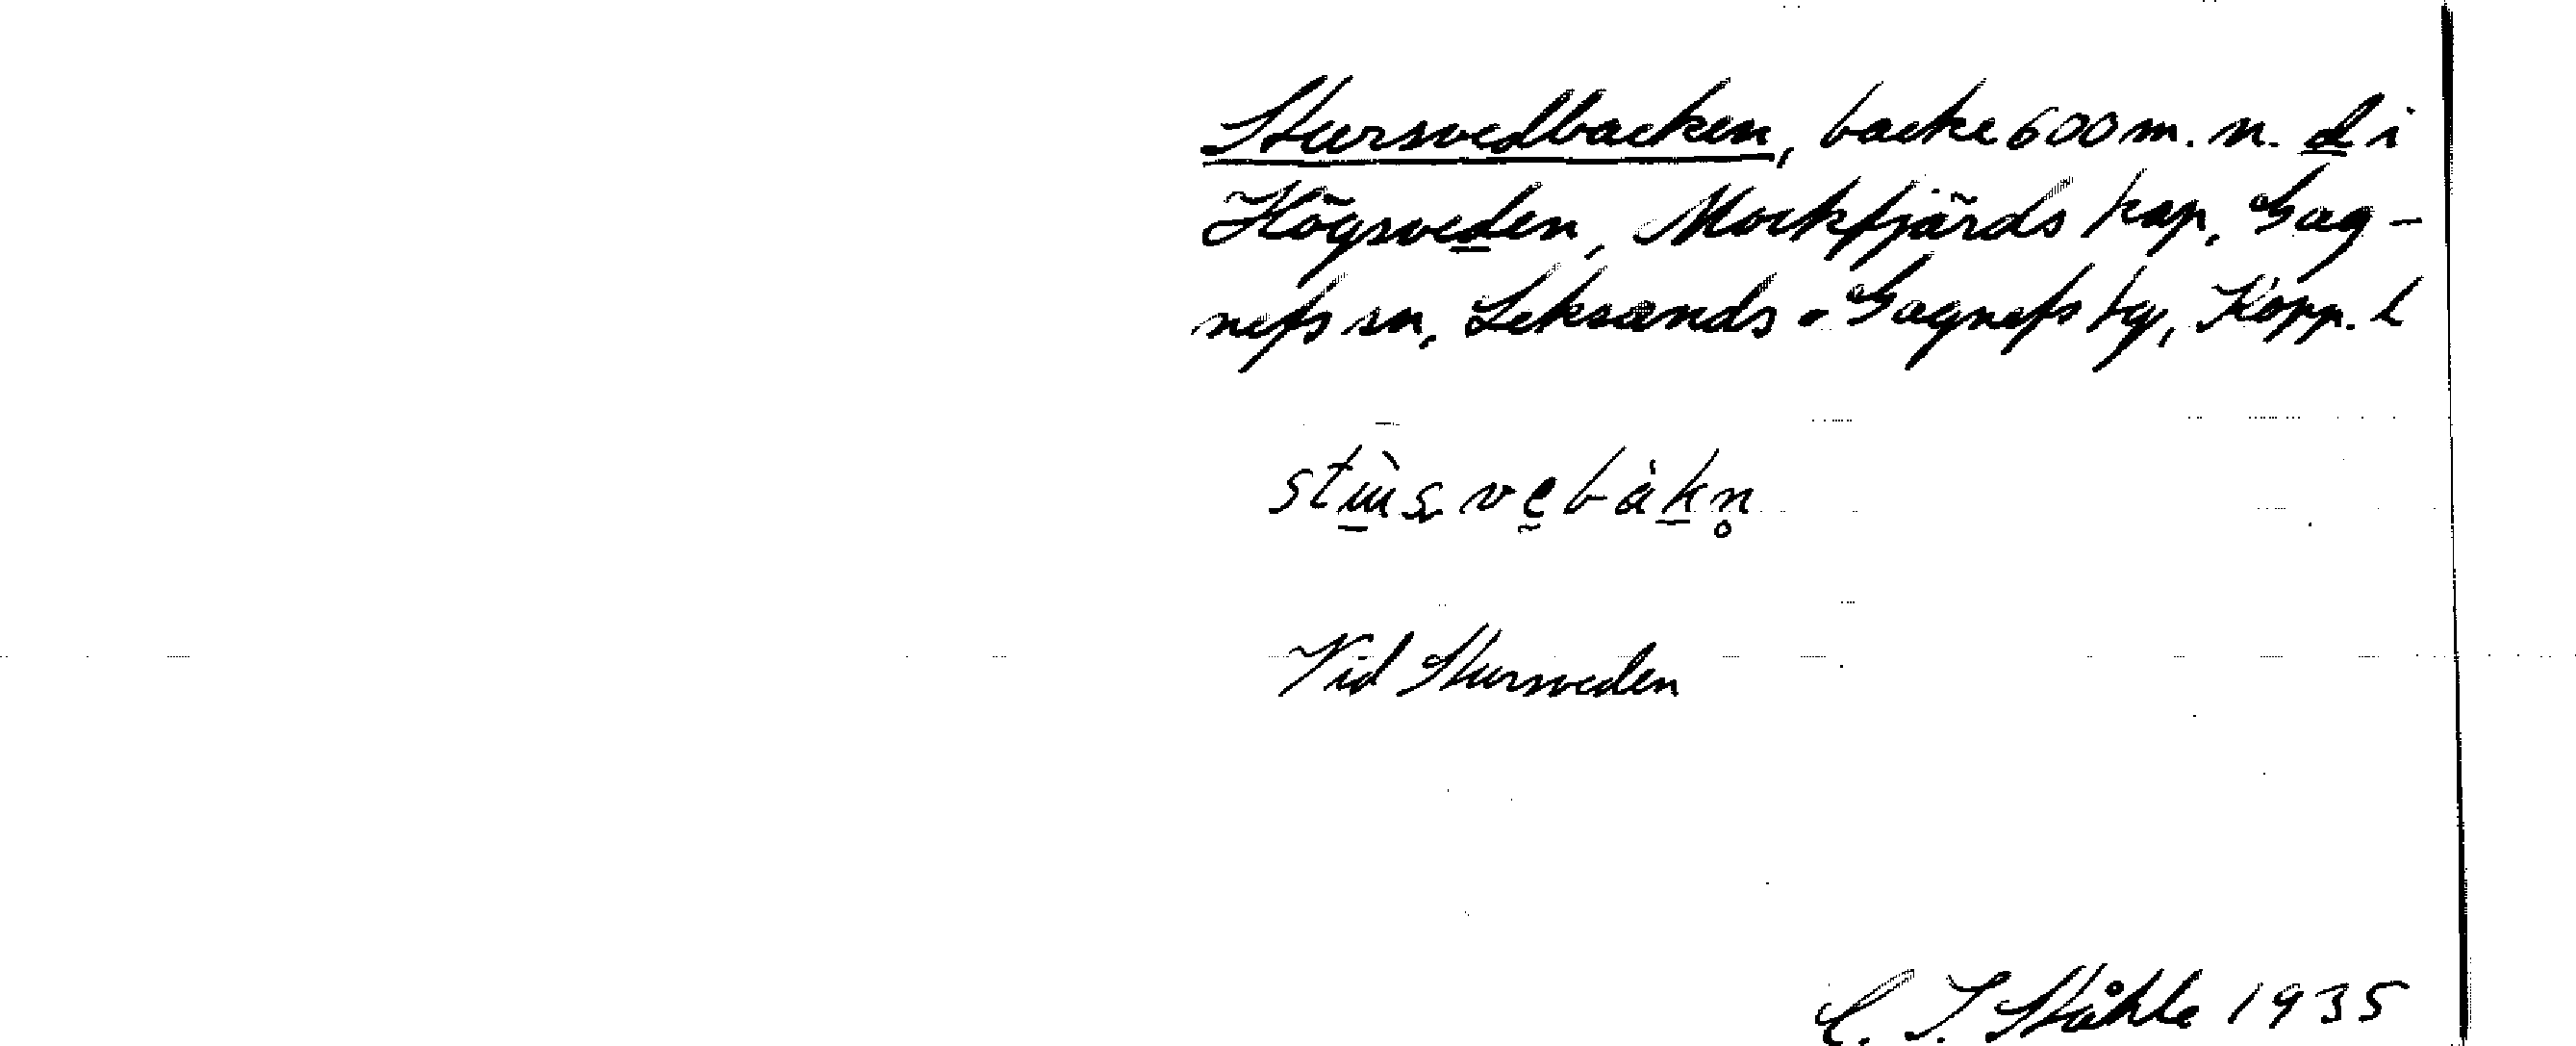 Stursvedbacken, backe 600 m. n. d i
Högsveden, Mockfjärds kap, Gag-
nefs sn, Leksands o Gagnefs tg, Kopp. l
Vid Stursveden
C. I. Ståhle 1935